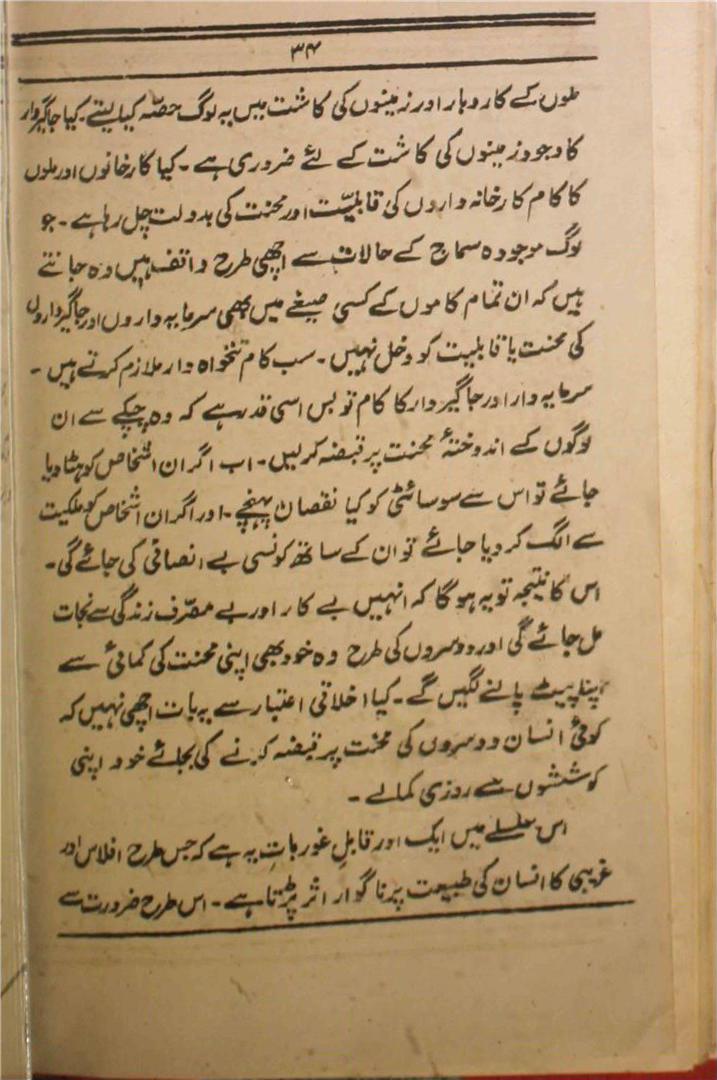 ۳۴
ملوں کے کاروبار اور زمینوں کی کاشت میں یہ لوگ حصّہ کیا لیتے۔ کیا جاگیردار
کا وجود زمینوں کی کاشت کے لئے ضروری ہے۔ کیا کارخانوں اور ملوں
کا کام کارخانہ داروں کی قابلیّت اور محنت کی بدولت چل رہا ہے۔ جو
لوگ موجودہ سماج کے حالات سے اچھی طرح واقف ہیں وہ جانتے
ہیں کہ ان تمام کاموں کے کسی صیغے میں بھی سرمایہ داروں اور جاگیرداروں
کی محنت یا قابلیت کو دخل نہیں۔ سب کام تنخواہ دار ملازم کرتے ہیں۔
سرمایہ دار اور جاگیردار کا کام تو بس اسی قدر ہے کہ وہ چپکے سے ان
لوگوں کے اندوختۂ محنت پر قبضہ کرلیں۔ اب اگر ان اشخاص کو ہٹا دیا
جائے تو اس سے سوسائٹی کو کیا نقصان پہنچے۔ اور اگر ان اشخاص کو ملکیت
سے الگ کر دیا جائے تو ان کے ساتھ کونسی بے انصافی کی جائے گی۔
اس کا نتیجہ تو یہ ہوگا کہ انہیں بے کار اور بے مصرف زندگی سے نجات
مل جائے گی اور دوسروں کی طرح وہ خود بھی اپنی محنت کی کمائی سے
اپنا پیٹ پالنے لگیں گے۔ کیا اخلاقی اعتبار سے یہ بات اچھی نہیں کہ
کوئی انسان دوسروں کی محنت پر قبضہ کرنے کی بجائے خود اپنی
کوششوں سے روزی کمالے۔
اس سلسلے میں ایک اور قابلِ غور بات یہ ہے کہ جس طرح افلاس اور
غریبی کا انسان کی طبیعت پر ناگوار اثر پڑتا ہے۔ اس طرح ضرورت سے